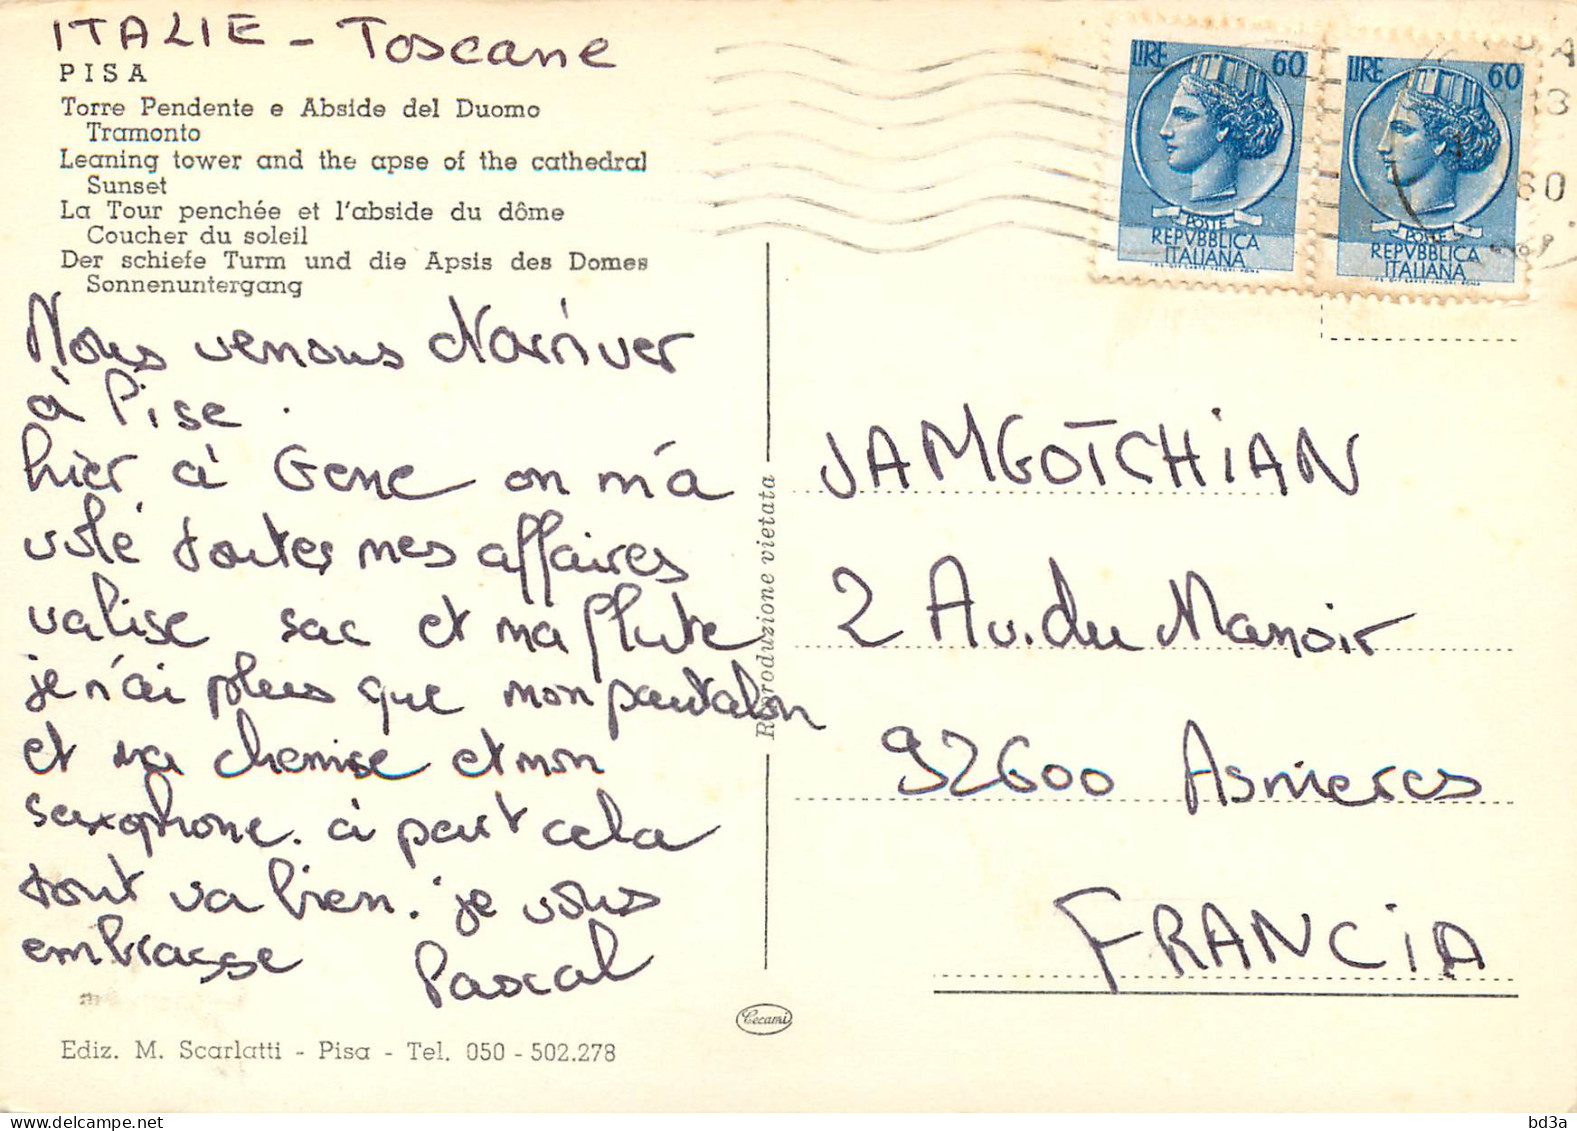 ITALIE - Toscane
PISA
Torre Pendente e Abside del Duomo
Tramonto
Leaning tower and the apse of the cathedral
Sunset
La Tour penchée et l'abside du dôme
Coucher du soleil
Der schiefe Turm und die Apsis des Domes
Sonnenuntergang
Nous venons d'arriver
à Pise.
hier à Gene on m'a
volé toutes mes affaires
valise sac et ma flute
je n'ai plus que mon pantalon
et ma chemise et mon
saxophone. à part cela
tout va bien. je vous
embrasse Pascal
Ediz. M. Scarlatti - Pisa - Tel. 050 - 502.278
Reproduzione vietata
Cecami
LIRE 60
POSTE
REPVBBLICA
ITALIANA
LIRE 60
POSTE
REPVBBLICA
ITALIANA
JAMGOTCHIAN
2 Av. du Manoir
92600 Asnieres
FRANCIA
delcampe.net
bd3a